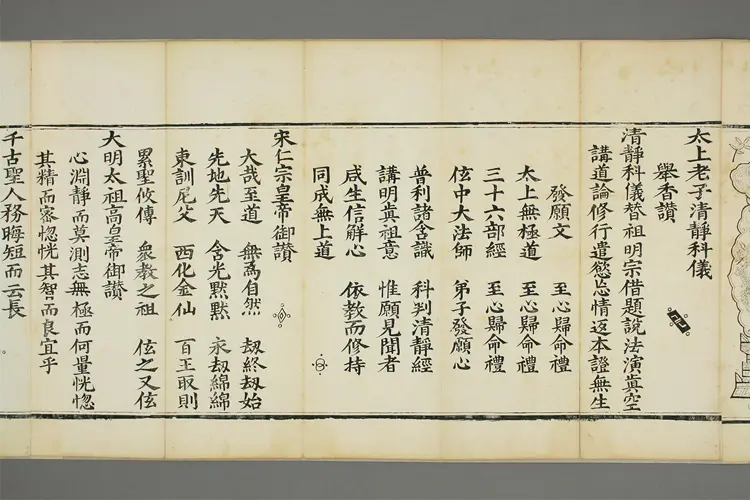 太上老子清靜科儀
舉香讚
清靜科儀替祖明宗借題說法演眞空
講道論修行遣慾忘情返本證無生
發願文　至心歸命禮
太上無極道　至心歸命禮
三十六部經　至心歸命禮
伭中大法師　弟子發願心
普利諸含識　科判清靜經
講明眞祖意　惟願見聞者
咸生信解心　依教而修持
同成無上道
宋仁宗皇帝御讚
大哉至道　無爲自然　劫終劫始
先地先天　含光黙黙　永劫綿綿
東訓尾父　西化金仙　百王取則
累聖攸傳　衆教之祖　伭之又伭
大明太祖高皇帝御讚
心淵靜而莫測志無極而何量恍惚
其精而密惚恍其智而良宜乎
千古聖人務晦短而云長